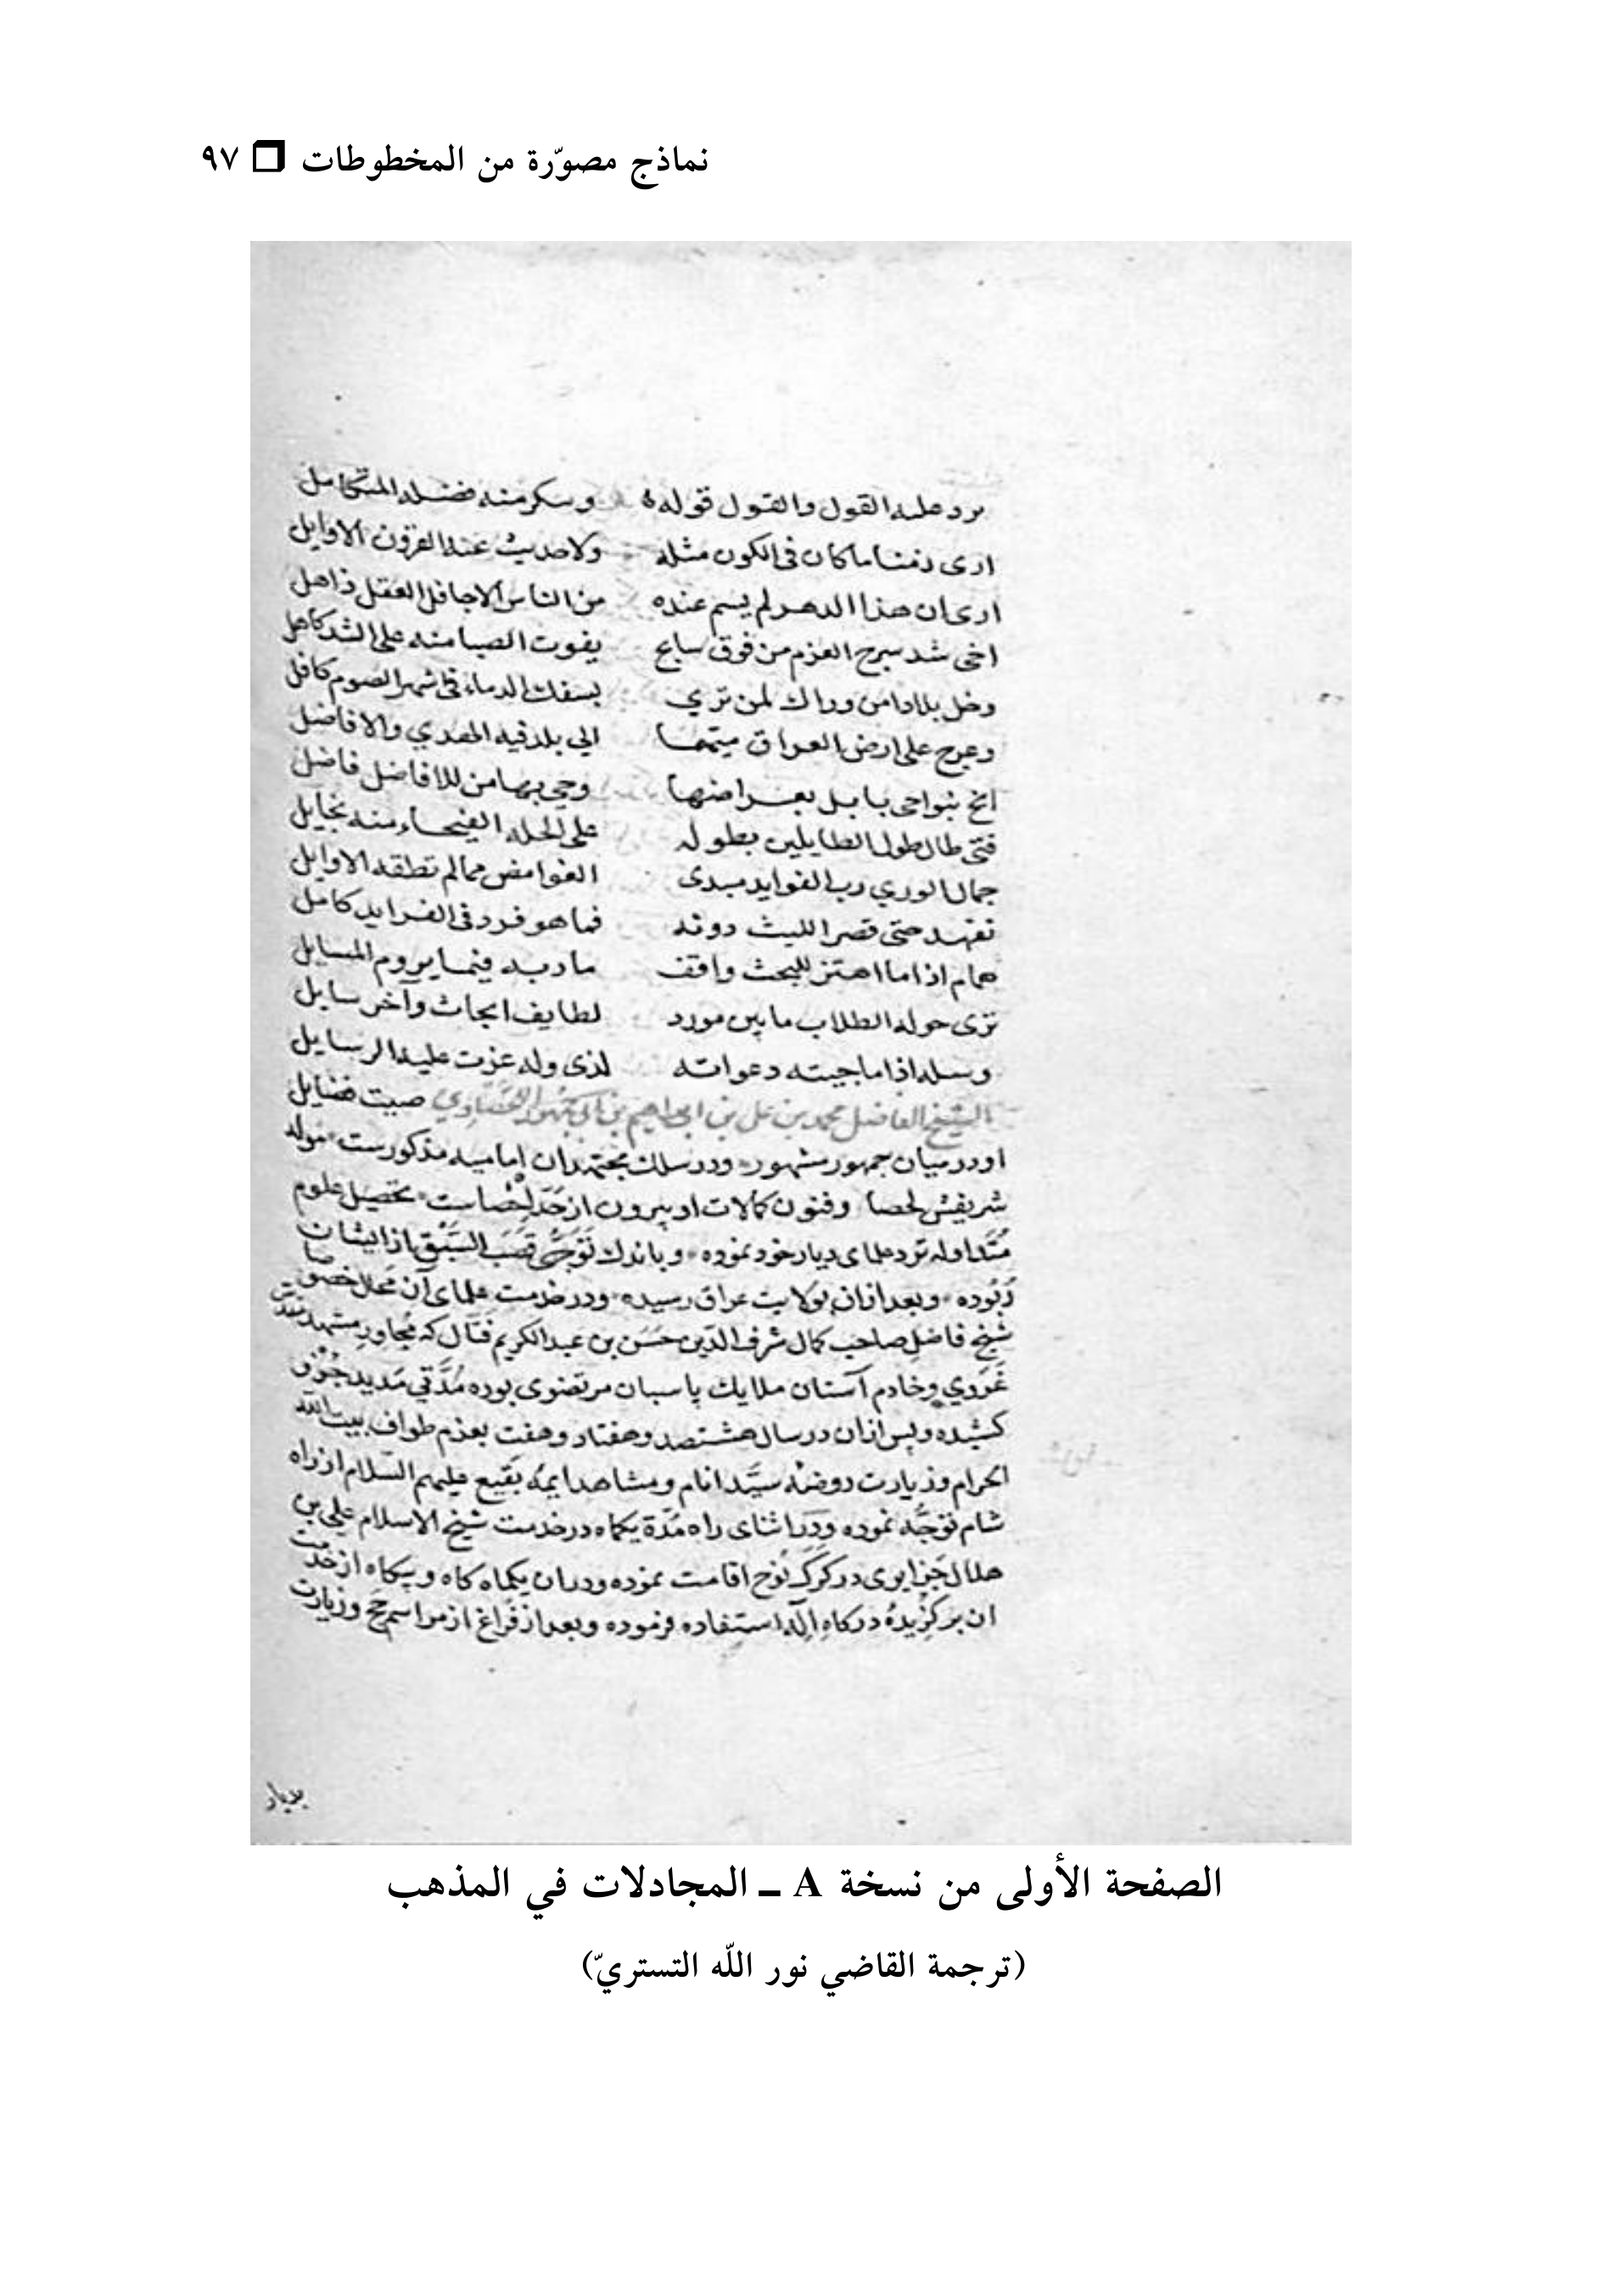 نماذج مصوّرة من المخطوطات ❒ ٩٧
يرد عليه القول والقول قوله وينكر منه فضله المتكامل
ارى زمنا ما كان فى الكون مثله ولا حديث عند القرون الاوايل
ارى ان هذا الدهر لم يسم عنده من الناس الا جافل العقل ذاهل
اخى شد سرج العزم من فوق سابح يفوت الصبا منه على الشد كاهل
وخل بلادا من وراك لمن تري بسفك الدماء فى شهر الصوم كافل
وعرج على ارض العراق ميمما الي بلد فيه الهدي والافاضل
انخ بنواحى بابل بعراصها وحي بها من للافاضل فاضل
فتى طال طول الطايلين بطوله على الحله الفيحاء منه
جمال الوري رب الفوايد مبدى الغوامض مما لم تطقه الاوايل
حتى قصر الليث دونه فما هو فرد فى الفرايد كامل
همام اذا ما اهتز للبحث واقف فيما يروم المسايل
ترى حوله الطلاب ما بين مورد لطايف ابحاث وآخر سايل
وسله اذا ما جيته دعواته لذى وله عزت عليه الرسايل
الشيخ الفاضل محمد بن على بن ابراهيم بن ابى جمهور صيت فضايل
او در ميان جمهور مشهور و در سلك مجتهدان اماميه مذكورست مولد
شريفش لحصا وفنون كمالات او بيرون از حدّ احصاست تحصيل علوم
متداوله نزد علماى ديار خود نموده و باندك توجّهى قصب السّبق از ايشان
ربوده وبعد از آن بولايت عراق رسيده ودر خدمت علماى آن محل خصوصا
شيخ فاضل صاحب كمال شرف الدّين حسن بن عبد الكريم فتّال كه مجاور مشهد مقدّس
غروي و خادم آستان ملايك پاسبان مرتضوى بوده مدّتي مديد
كشيده و پس از آن در سال هشتصد و هفتاد و هفت بعزم طواف بيت اللّه
الحرام و زيارت روضه سيّد انام و مشاهد ايمّه بقيع عليهم السّلام از راه
شام توجّه نموده و در اثناى راه مدّة يكماه در خدمت شيخ الاسلام علي بن
هلال جزايرى در كرك نوح اقامت نموده و در ان يكماه كاه و بيكاه از خدمت
ان بركزيدهٔ دركاه اله استفاده فرموده و بعد از فراغ از مراسم حج و زيارت
بديار
الصفحة الأولى من نسخة A ــ المجادلات في المذهب
(ترجمة القاضي نور اللّه التستريّ)